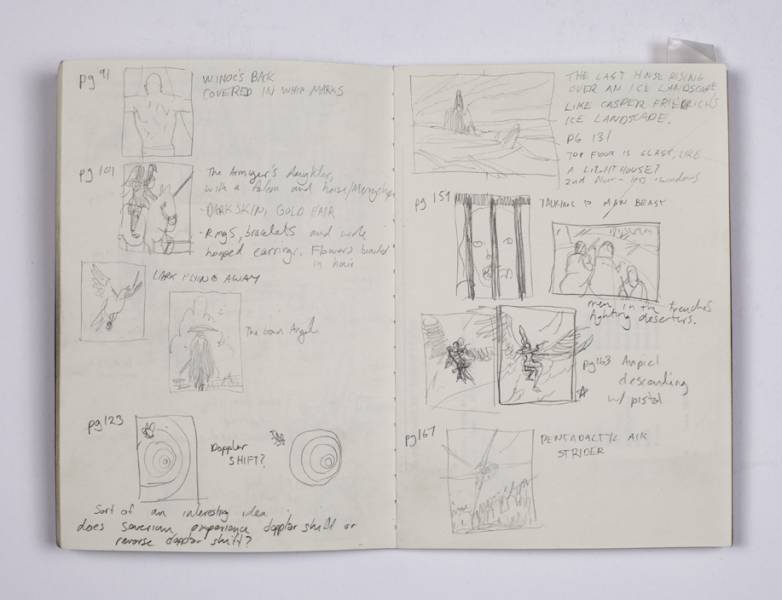 pg 91
WINOC'S BACK
COVERED IN WHIP MARKS
pg 101
The Armiger's daughter,
with a falcon and horse/Merychip
- DARK SKIN, GOLD HAIR
- Rings, bracelets and wide
hooped earrings. Flowers
in hair
LARK FLYING AWAY
The town Argul
pg 123
Doppler
SHIFT?
Sort of an interesting idea
does Severian experience doppler shift or
reverse doppler shift?
THE LAST HOUSE RISING
OVER AN ICE LANDSCAPE
LIKE CASPER FRIEDRICH'S
ICE LANDSCAPE.
PG 131
TOP FLOOR IS GLASS, LIKE
A LIGHTHOUSE?
2nd floor - windows
pg 159
TALKING TO MAN BEAST
men in the trenches
fighting deserters.
pg 163 Anpiel
descending
w/ pistol
pg 167
PENTADACTYL AIR
STRIDER